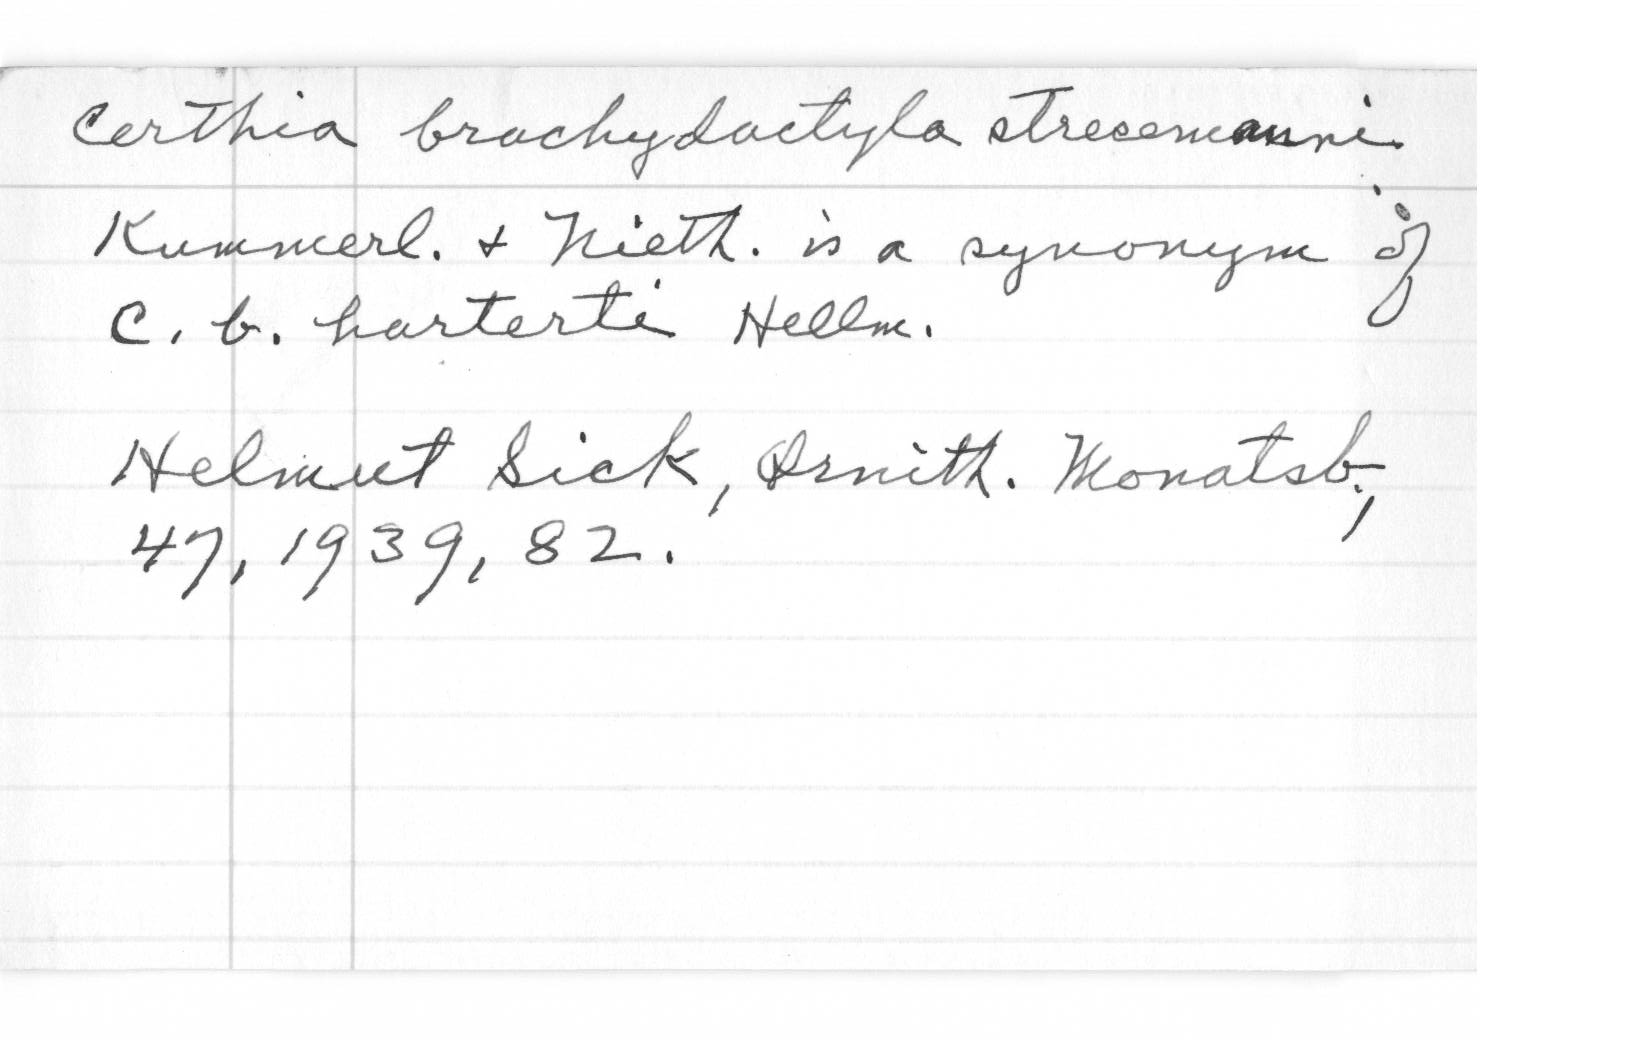 Certhia brachydactyla stresemanni
Kummerl. + Nieth. is a synonym of
C. b. harterti Hellm.
Helmut Sick, Ornith. Monatsb.,
47, 1939, 82.